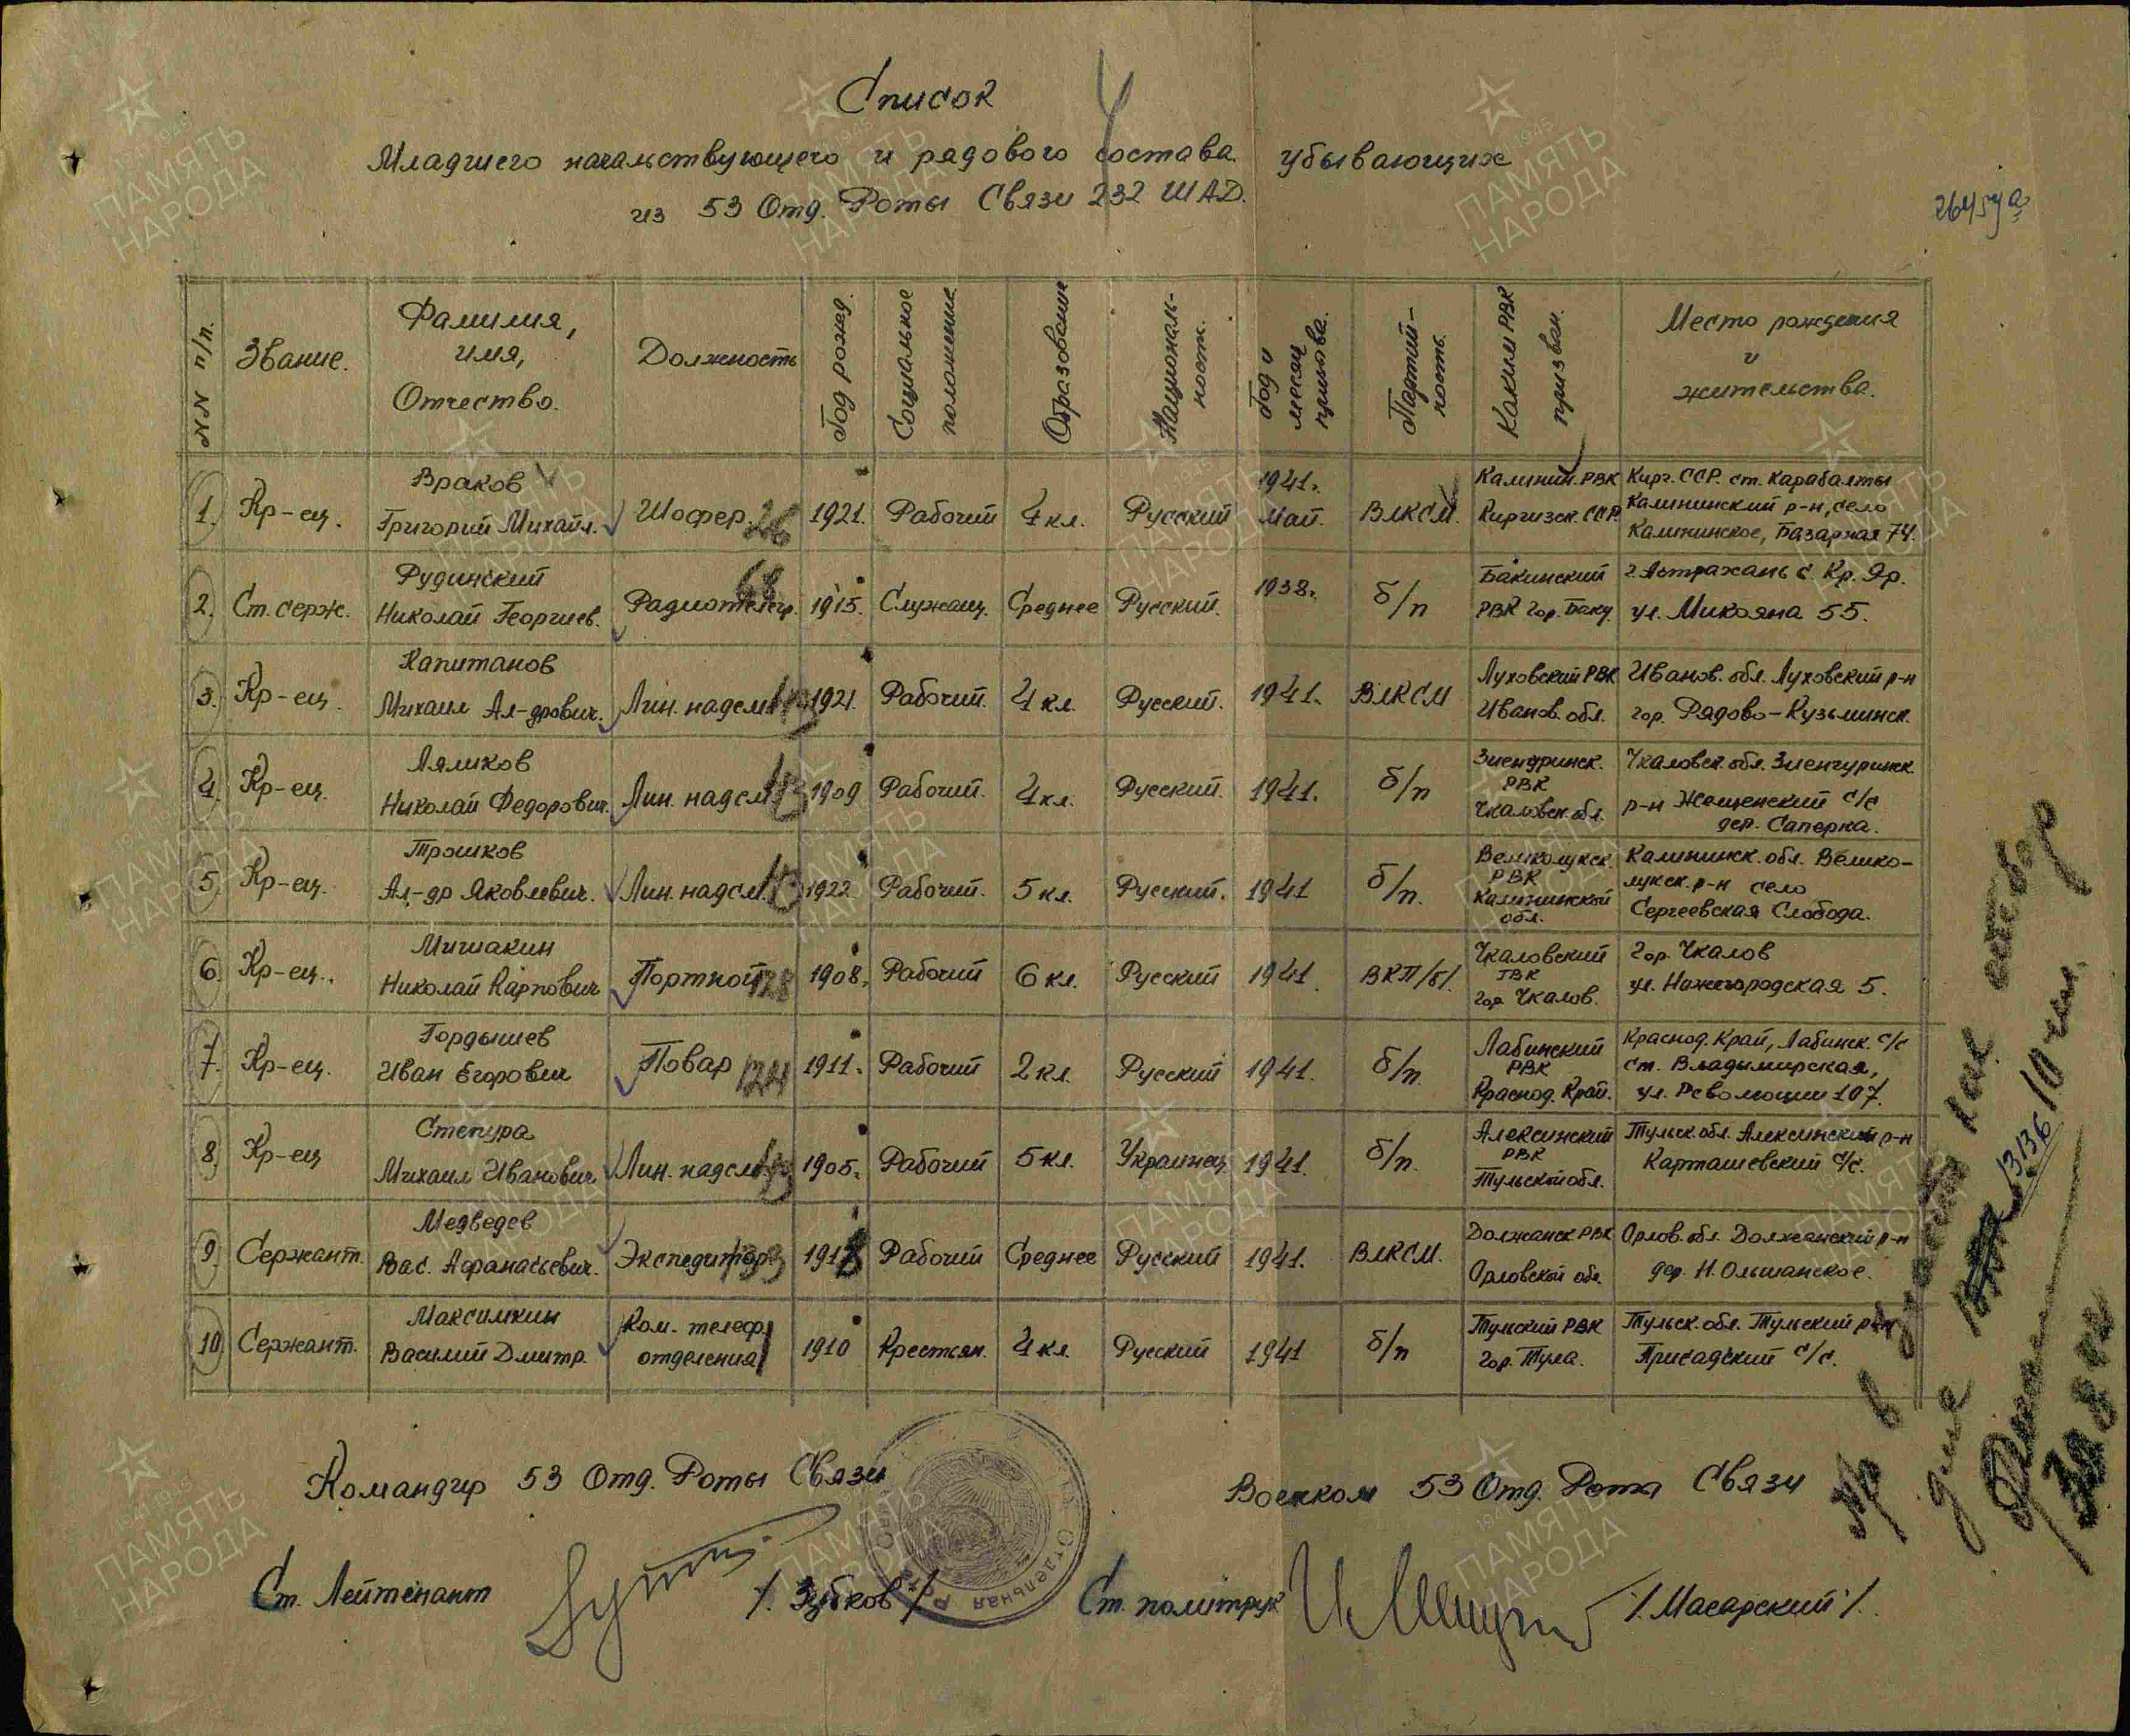 Список
Младшего начальствующего и рядового состава убывающих
из 53 Отд. Роты Связи 232 ШАД.
NN п/п. Звание. Фамилия, имя, Отчество. Должность Год рожд. Социальное положение Образование Националь-ность. Год и месяц призыва. Партий-ность. Каким РВК призван. Место рождения и жительства.
1. Кр-ец. Враков Григорий Михайл. Шофер. 26 1921. Рабочий 4 кл. Русский 1941г. Май. ВЛКСМ. Калинин. РВК Киргизск. ССР. Кирг. ССР. ст. Карабалты Калининский р-н, село Калининское, Базарная 74.
2. Ст. серж. Рудинский Николай Георгиев. Радиотелегр. 68 1915. Служащ. Среднее Русский. 1938г. б/п Бакинский РВК гор. Баку. г. Астрахань с. Кр. Яр. ул. Микояна 55.
3. Кр-ец. Капитанов Михаил Ал-дрович. Лин. надсм. 13 1921. Рабочий. 4 кл. Русский. 1941. ВЛКСМ Луховский РВК Иванов. обл. Иванов. обл. Луховский р-н гор. Рядово-Кузьминск.
4. Кр-ец. Лямков Николай Федорович. Лин. надсм. 13 1909 Рабочий. 4 кл. Русский. 1941. б/п РВК Чкаловск. обл. Чкаловск. обл. р-н с/с дер. Саперка.
5. Кр-ец. Трошков Ал-др Яковлевич. Лин. надсм. 13 1922 Рабочий. 5 кл. Русский. 1941 б/п. Великолукск. РВК Калининской обл. Калининск. обл. Велико-лукск. р-н село Сергеевская Слобода.
6. Кр-ец. Мишакин Николай Карпович Портной 128 1908. Рабочий 6 кл. Русский 1941. ВКП/б/. Чкаловский ГВК гор. Чкалов. Гор. Чкалов ул. Нижегородская 5.
7. Кр-ец. Гордышев Иван Егорович Повар 124 1911. Рабочий 2 кл. Русский 1941. б/п. Лабинский РВК Краснод. Край. Краснод. Край, Лабинск. с/с ст. Владымирская, ул. Революции 107.
8. Кр-ец Степура Михаил Иванович Лин. надсм. 13 1905. Рабочий 5 кл. Украинец 1941. б/п. Алексинский РВК Тульской обл. Тульск. обл. Алексинский р-н Карташевский с/с.
9. Сержант. Медведев Вас. Афанасьевич. Экспедитор. 133 1918 Рабочий Среднее Русский 1941. ВЛКСМ. Должанск РВК Орловской обл. Орлов. обл. Должанский р-н дер. Н. Ольшанское.
10. Сержант. Максимкин Василий Дмитр. Ком. телеф. отделения 1910 Крестьян. 4 кл. Русский 1941 б/п Тульский РВК гор. Тула. Тульск. обл. Тульский р-н Присадский с/с.
Командир 53 Отд. Роты Связи
Военком 53 Отд. Роты Связи
Ст. Лейтенант /. Зубков /
Ст. политрук /. Масарский /.
Отдельная Рота
13136
ПАМЯТЬ НАРОДА
1941-1945